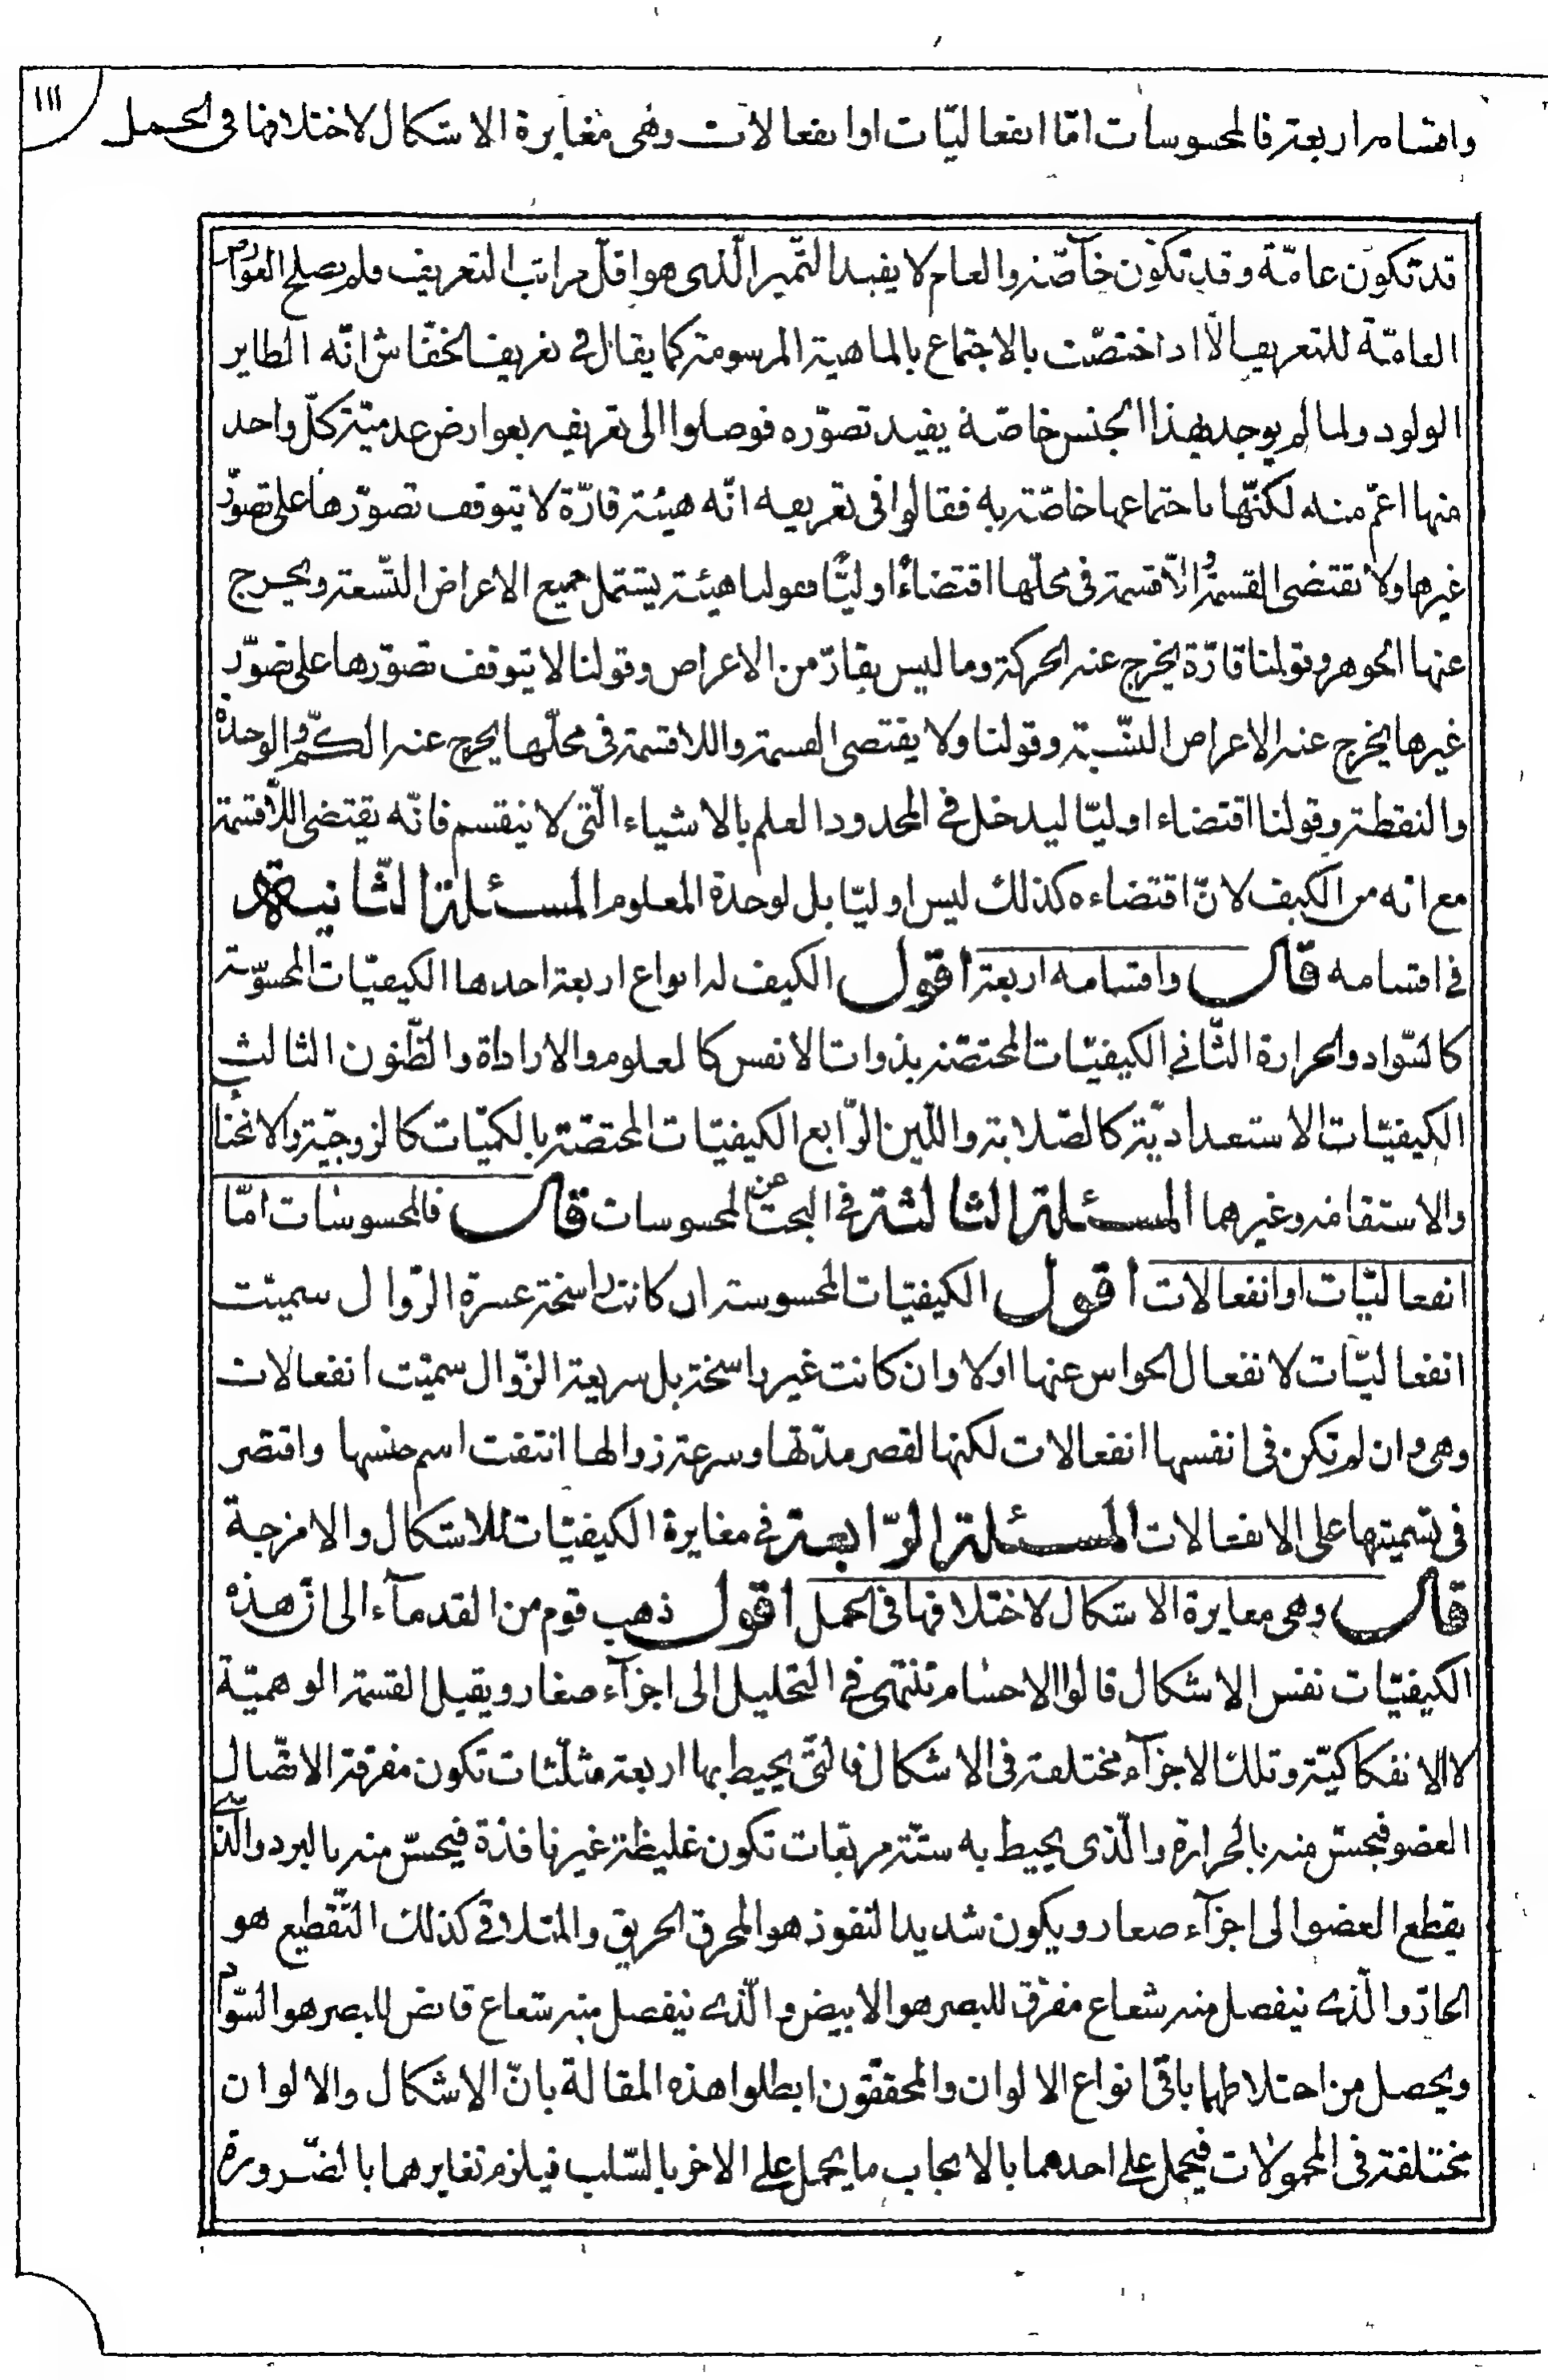 ١١١
واقسامه اربعة فالمحسوسات امّا انفعاليّات او انفعالات وهى مغايرة الاشكال لاختلافها فى الحمل
قد تكون عامّة وقد تكون خآصّة والعام لا يفيد التّميز الّذى هو اقلّ مراتب التعريف فلم يصلح العوارض
العامّة للتعريف الّا اذا اختصّت بالاجتماع بالماهية المرسومة كما يقال فى تعريف الخفّاش انّه الطاير
الولود ولما لم يوجد لهذا الجنس خاصّة يفيد تصوّره فوصلوا الى تعريفه بعوارض عدميّة كلّ واحد
منها اعمّ منه لكنّها باجتماعها خاصّة به فقالوا فى تعريفه انّه هيئة قارّة لا يتوقف تصوّرها على تصوّر
غيرها ولا تقتضى القسمة والّلاقسمة فى محلّها اقتضاءً اوليًّا فقولنا هيئة يشتمل جميع الاعراض التّسعة ويخرج
عنها الجوهر وقولنا قارّة يخرج عنه الحركة وما ليس بقارّ من الاعراض وقولنا لا يتوقف تصوّرها على تصوّر
غيرها يخرج عنه الاعراض النّسبيّة وقولنا ولا يقتضى القسمة واللاقسمة فى محلّها يخرج عنه الكمّ والوحدة
والنقطة وقولنا اقتضاء اوليّا ليدخل فى المحدود العلم بالاشياء الّتى لا ينقسم فانّه يقتضى اللّاقسمة
مع انه من الكيف لانّ اقتضاءه كذلك ليس اوليّا بل لوحدة المعلوم المسئلة الثّانية
فى اقسامه قال واقسامه اربعة اقول الكيف له انواع اربعة احدها الكيفيّات المحسوسة
كالسّواد والحرارة الثّانى الكيفيّات المختصّة بذوات الانفس كالعلوم والارادة والظّنون الثالث
الكيفيّات الاستعداديّة كالصّلابة واللّين الرّابع الكيفيّات المختصّة بالكميّات كالزوجيّة والانحناء
والاستقامة وغيرهما المسئلة الثالثة فى البحث عن المحسوسات قال فالمحسوسات امّا
انفعاليّات او انفعالات اقول الكيفيّات المحسوسة ان كانت راسخة عسرة الزّوال سميت
انفعاليّات لانفعال الحواس عنها اولا وان كانت غير راسخة بل سريعة الزّوال سميّت انفعالات
وهى وان لم تكن فى انفسها انفعالات لكنها لقصر مدّتها وسرعة زوالها انتفت اسم جنسها واقتصر
فى تسميتها على الانفعالات المسئلة الرّابعة فى مغايرة الكيفيّات للاشكال والامزجة
قال وهى مغايرة الاشكال لاختلافها فى الحمل اقول ذهب قوم من القدمآء الى انّ هذه
الكيفيّات نفس الاشكال قالوا الاجسام تنتهى فى التحليل الى اجزآء صغار ويقبل القسمة الوهميّة
لا الانفكاكيّة وتلك الاجزآء مختلفة فى الاشكال فالتى يحيط بها اربعة مثلّثات تكون مفرّقة الاتّصال
العضو فيحسّ منه بالحرارة والّذى يحيط به ستّة مربّعات تكون غليظة غير نافذة فيحسّ منه بالبرد والّذى
يقطع العضو الى اجزآء صغار ويكون شديد النفوذ هو المحرق الحريق والمتلاقى كذلك التّقطيع هو
الحارّ والّذى ينفصل منه شعاع مفرّق للبصر هو الابيض والّذى ينفصل منه شعاع قابض للبصر هو السّواد
ويحصل من اختلاطهما باقى انواع الالوان والمحققون ابطلوا هذه المقالة بانّ الاشكال والالوان
مختلفة فى المحمولات فيحمل على احدهما بالايجاب ما يحمل على الاخر بالسّلب فيلزم تغايرهما بالضّرورة